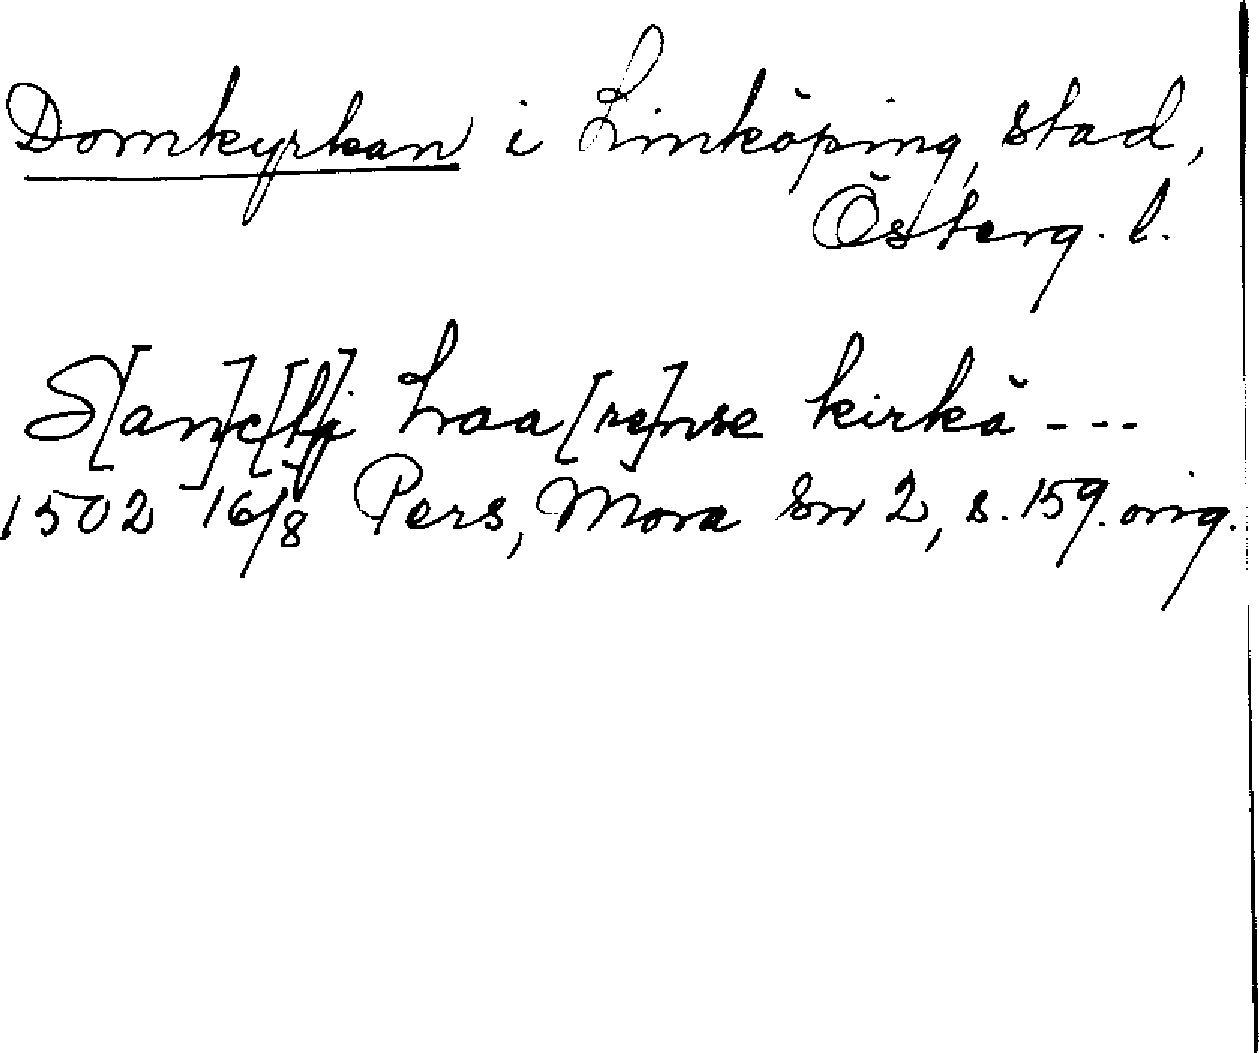 Domkyrkan i Linköping, stad,
Österg. l.
S[an]c[t]i Laa[re]nse kirkä ---
1502 16/8 Pers, Mora sn 2, s. 159. orig.